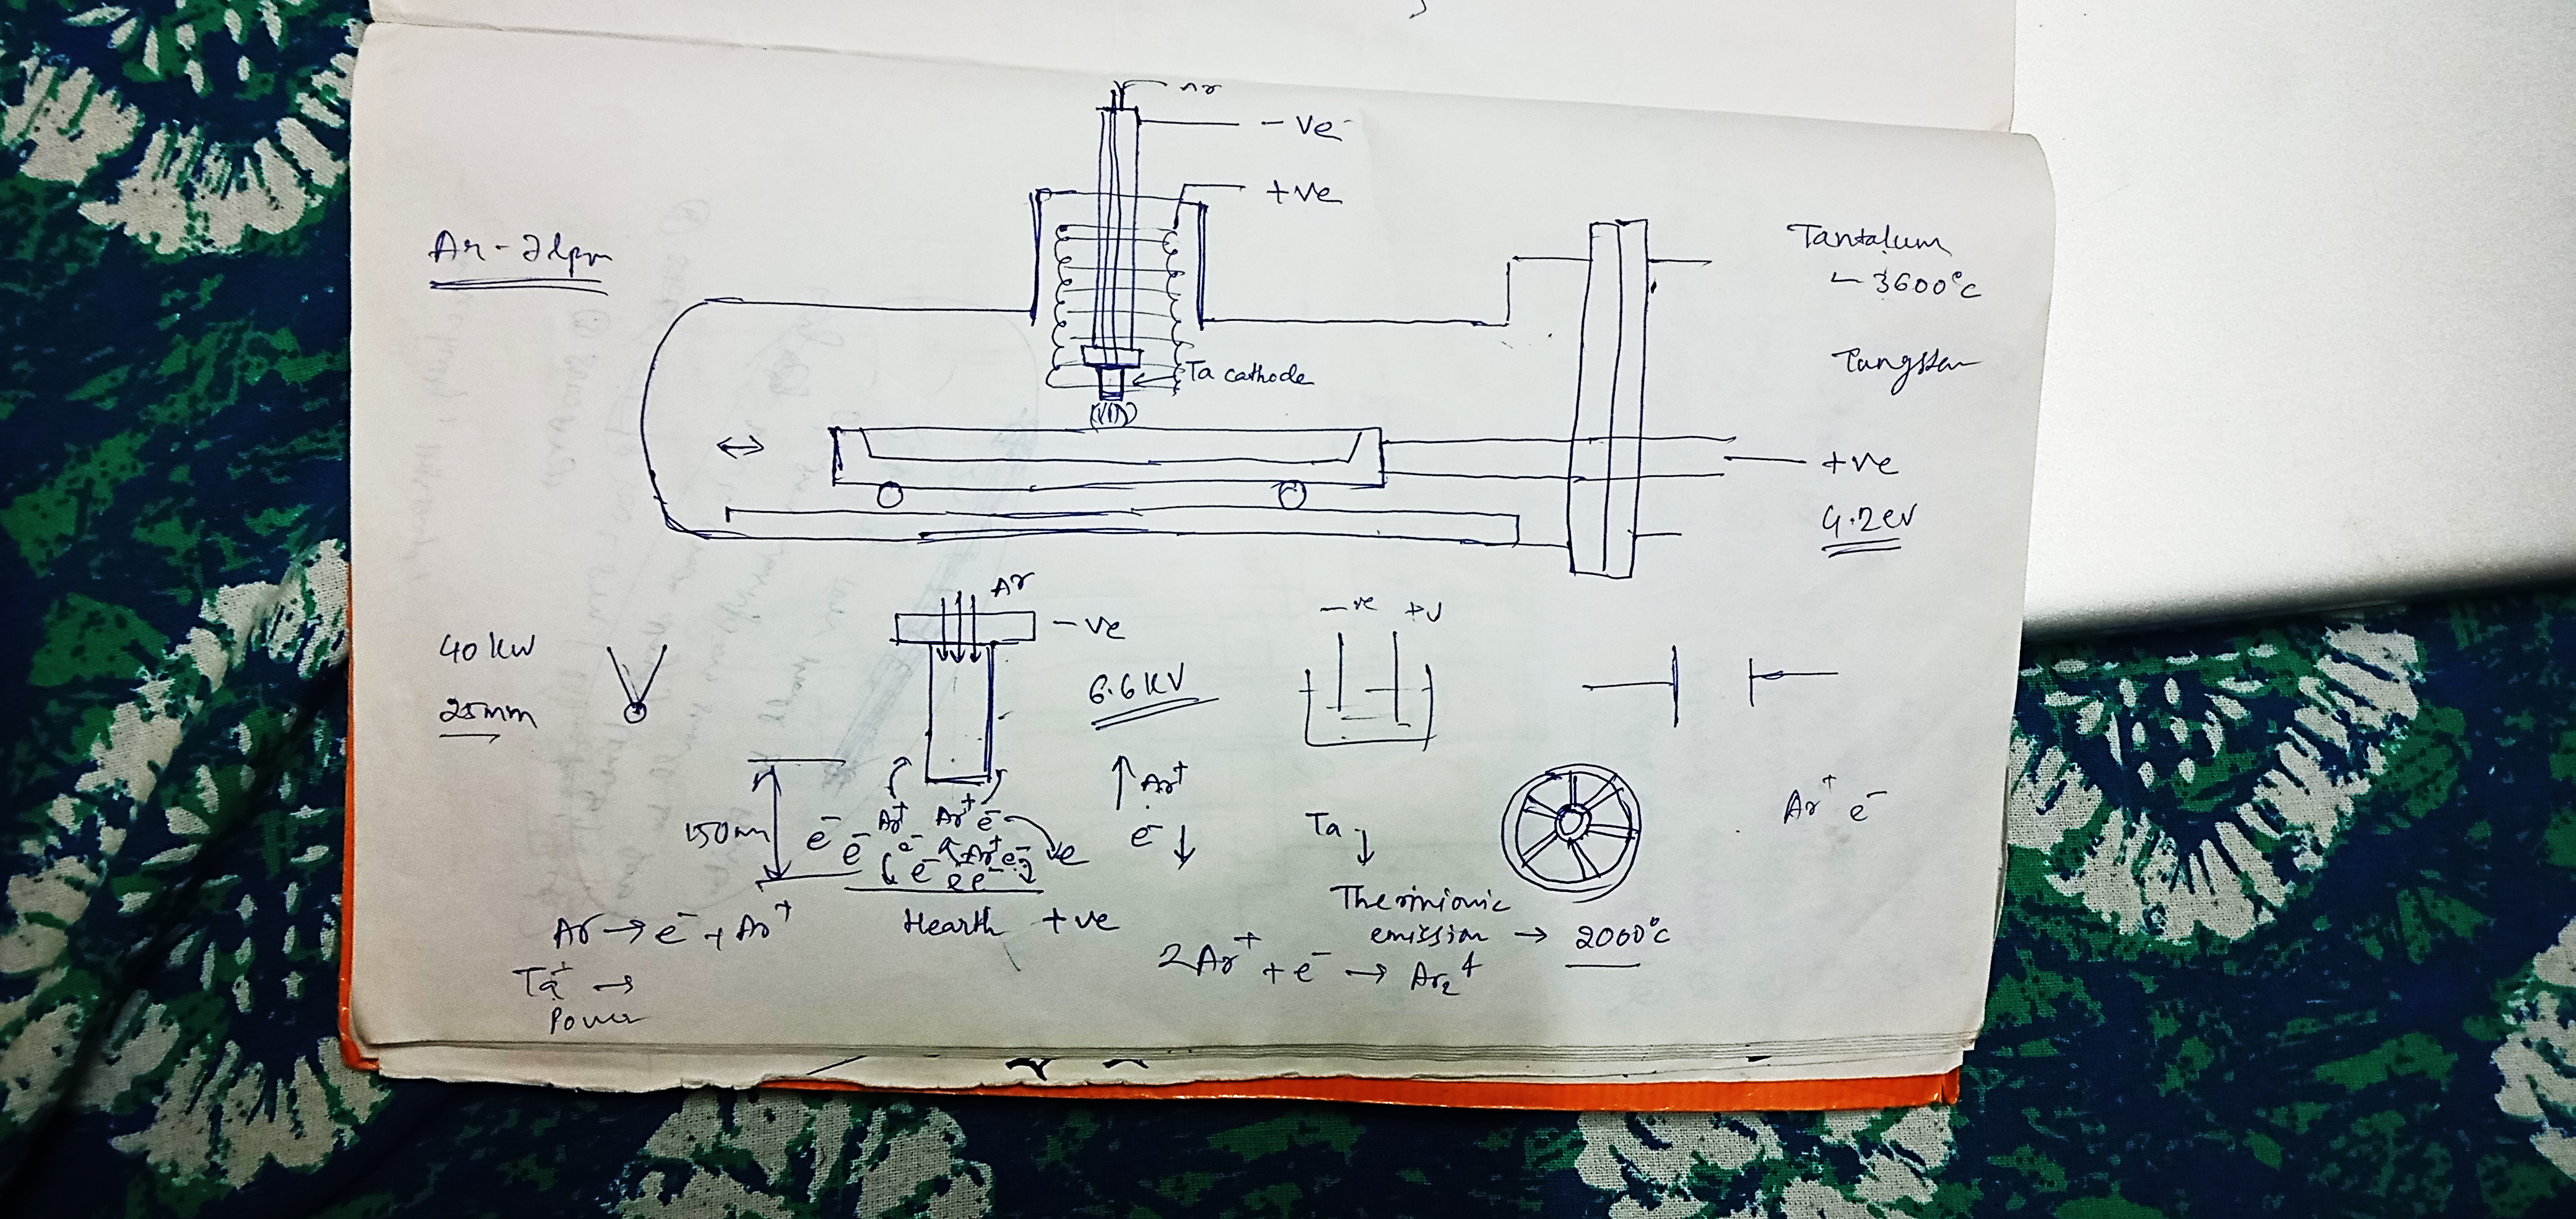 Ar
- ve
+ ve
Ar - 2lpm
Tantalum
3600°C
Tungsten
Ta cathode
+ve
4.2ev
Ar
- ve
-ve +V
40 kW
25mm
6.6 KV
Ar+
Ar+ e-
150mm
e- e- Ar+ Ar+ e-
e- Ar+ e- e
e- e e-
e-
Ta
Hearth +ve
Thermionic
emission → 2000°C
Ar → e- + Ar+
2Ar+ + e- → Ar2+
Ta+ →
Power